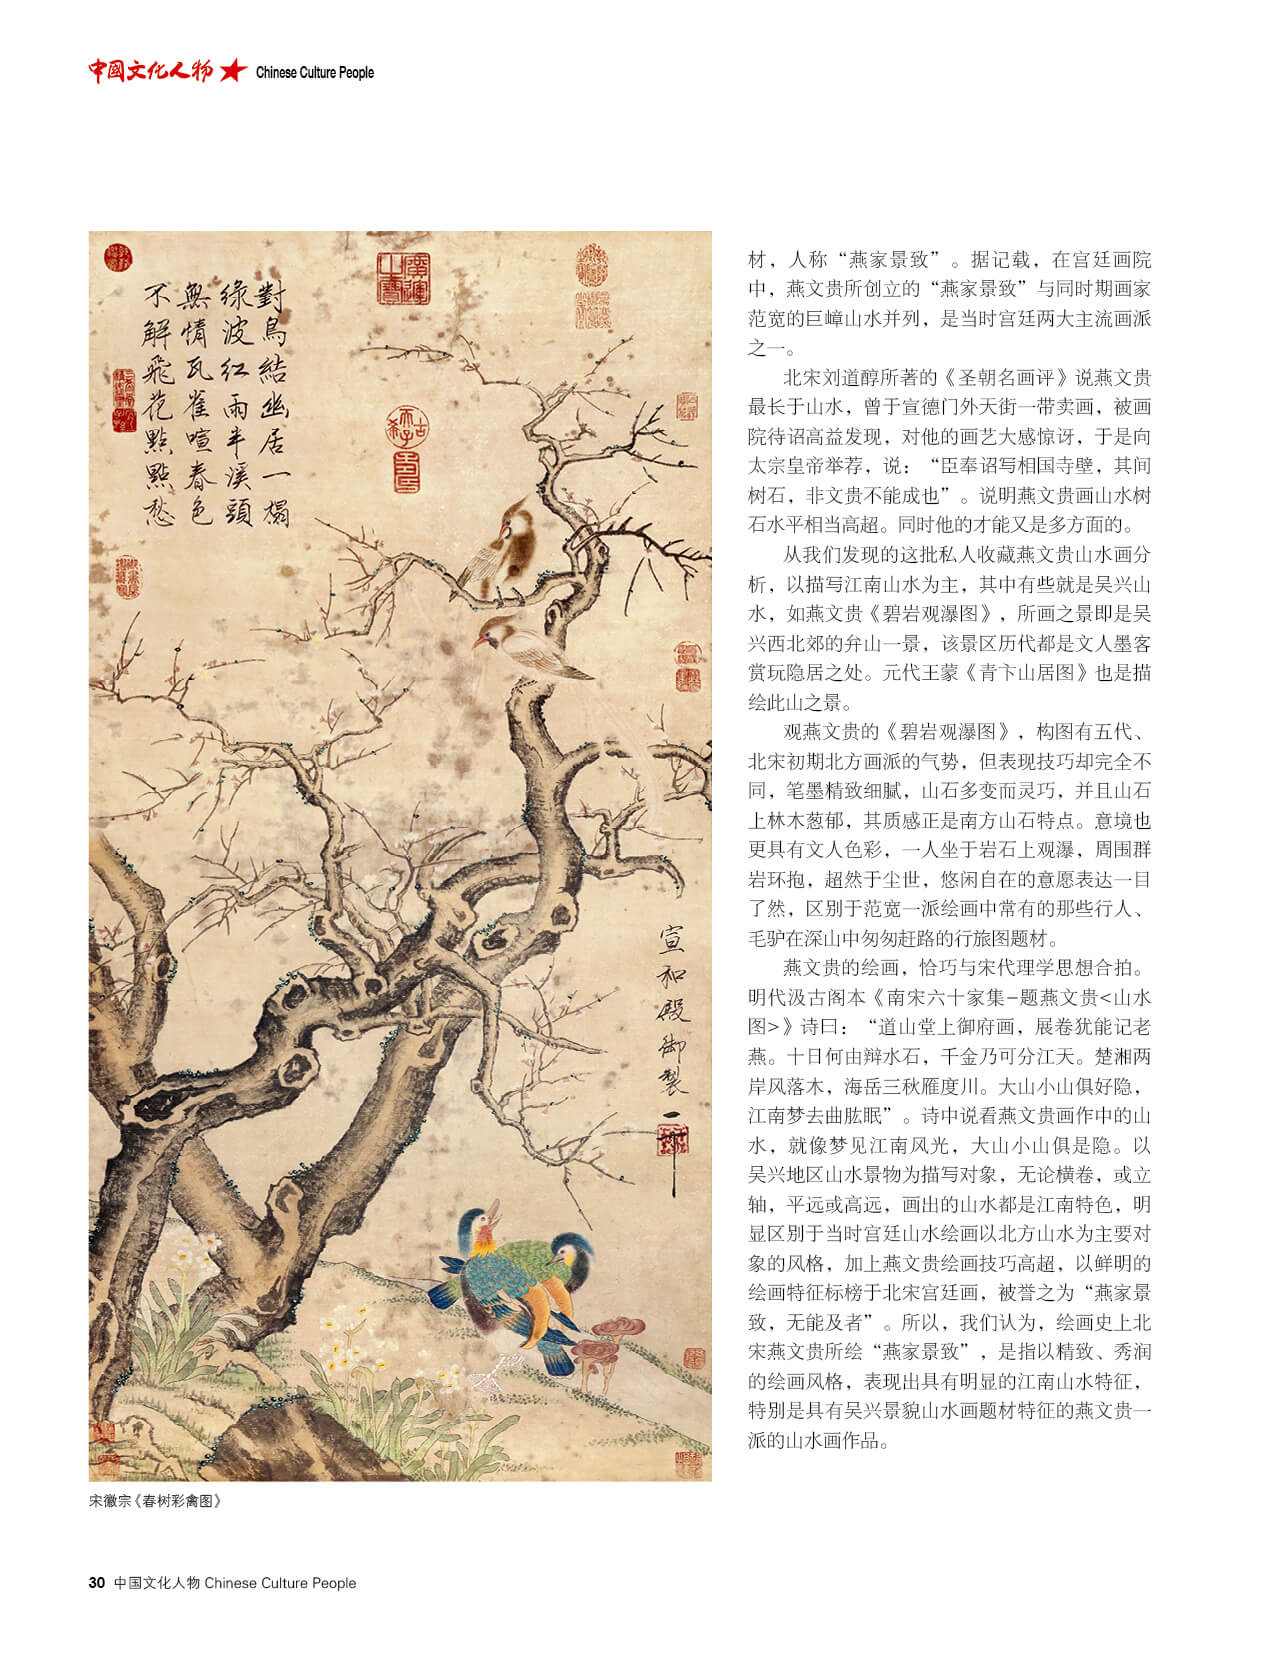 中國文化人物 Chinese Culture People
對鳥結幽居一榻
綠波紅雨半溪頭
無情瓦雀喧春色
不解飛花點點愁
宣和殿御製
宋徽宗《春树彩禽图》
材，人称“燕家景致”。据记载，在宫廷画院
中，燕文贵所创立的“燕家景致”与同时期画家
范宽的巨嶂山水并列，是当时宫廷两大主流画派
之一。
北宋刘道醇所著的《圣朝名画评》说燕文贵
最长于山水，曾于宣德门外天街一带卖画，被画
院待诏高益发现，对他的画艺大感惊讶，于是向
太宗皇帝举荐，说：“臣奉诏写相国寺壁，其间
树石，非文贵不能成也”。说明燕文贵画山水树
石水平相当高超。同时他的才能又是多方面的。
从我们发现的这批私人收藏燕文贵山水画分
析，以描写江南山水为主，其中有些就是吴兴山
水，如燕文贵《碧岩观瀑图》，所画之景即是吴
兴西北郊的弁山一景，该景区历代都是文人墨客
赏玩隐居之处。元代王蒙《青卞山居图》也是描
绘此山之景。
观燕文贵的《碧岩观瀑图》，构图有五代、
北宋初期北方画派的气势，但表现技巧却完全不
同，笔墨精致细腻，山石多变而灵巧，并且山石
上林木葱郁，其质感正是南方山石特点。意境也
更具有文人色彩，一人坐于岩石上观瀑，周围群
岩环抱，超然于尘世，悠闲自在的意愿表达一目
了然，区别于范宽一派绘画中常有的那些行人、
毛驴在深山中匆匆赶路的行旅图题材。
燕文贵的绘画，恰巧与宋代理学思想合拍。
明代汲古阁本《南宋六十家集-题燕文贵<山水
图>》诗曰：“道山堂上御府画，展卷犹能记老
燕。十日何由辩水石，千金乃可分江天。楚湘两
岸风落木，海岳三秋雁度川。大山小山俱好隐，
江南梦去曲肱眠”。诗中说看燕文贵画作中的山
水，就像梦见江南风光，大山小山俱是隐。以
吴兴地区山水景物为描写对象，无论横卷，或立
轴，平远或高远，画出的山水都是江南特色，明
显区别于当时宫廷山水绘画以北方山水为主要对
象的风格，加上燕文贵绘画技巧高超，以鲜明的
绘画特征标榜于北宋宫廷画，被誉之为“燕家景
致，无能及者”。所以，我们认为，绘画史上北
宋燕文贵所绘“燕家景致”，是指以精致、秀润
的绘画风格，表现出具有明显的江南山水特征，
特别是具有吴兴景貌山水画题材特征的燕文贵一
派的山水画作品。
30 中国文化人物 Chinese Culture People